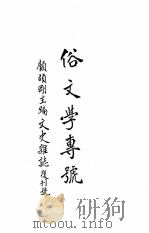 俗文學專號
顧頡剛主編文史雜誌復刊號